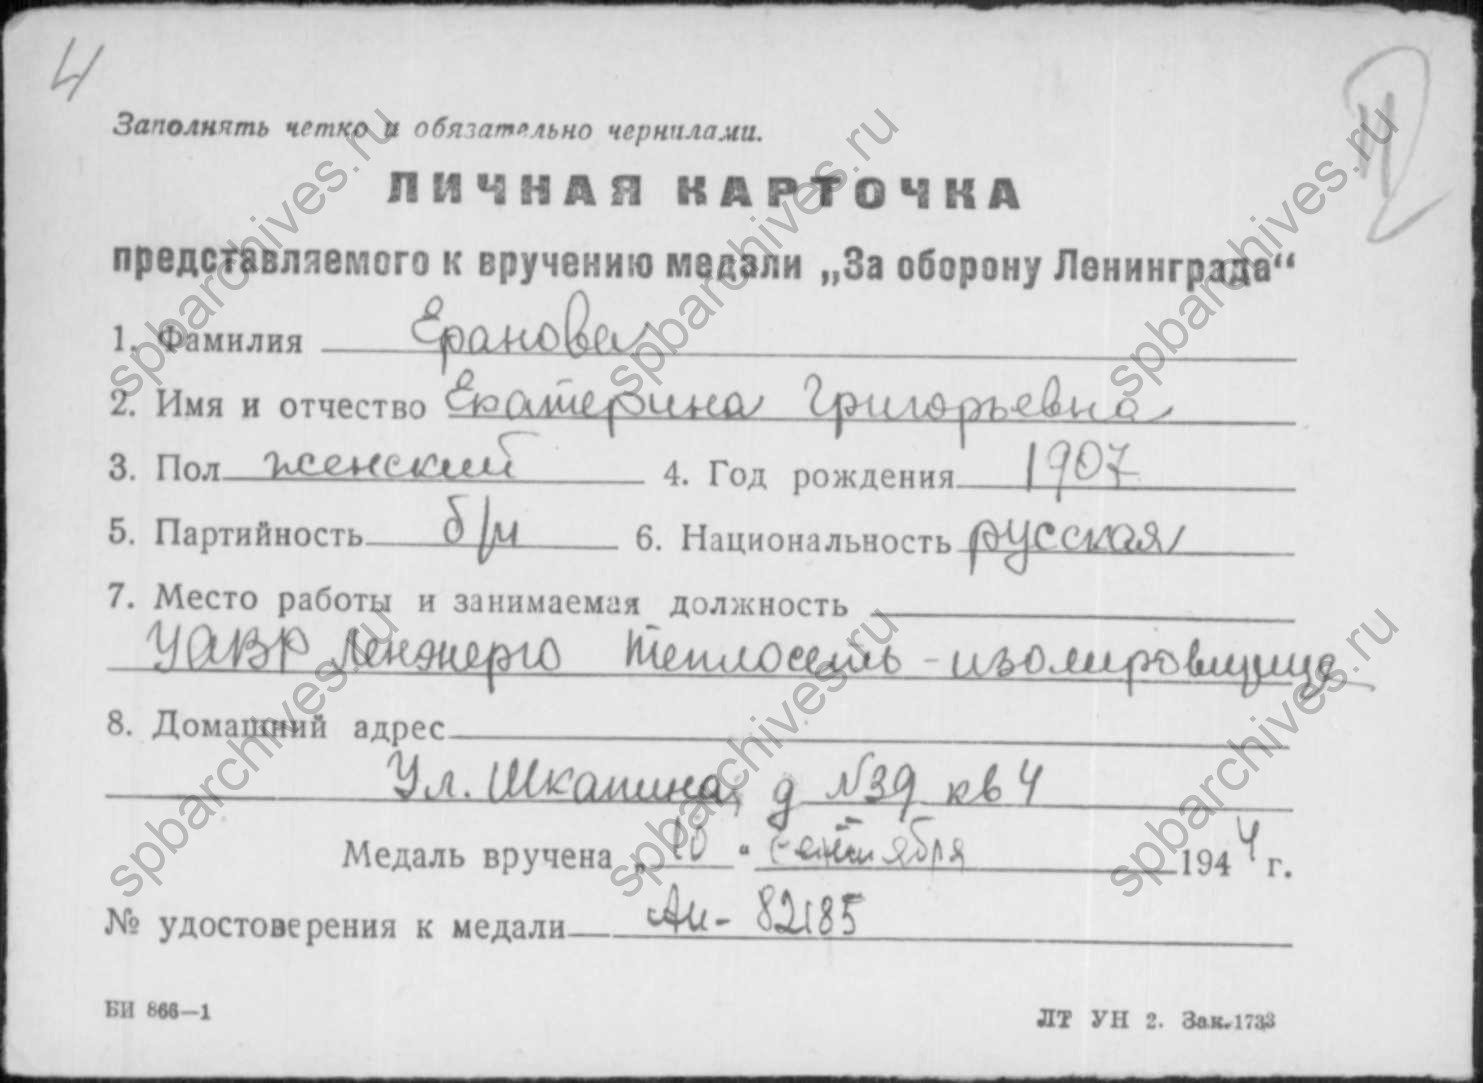 4
Заполнять четко и обязательно чернилами.
ЛИЧНАЯ КАРТОЧКА
представляемого к вручению медали „За оборону Ленинграда“
1. Фамилия Еранова
2. Имя и отчество Екатерина Григорьевна
3. Пол женский 4. Год рождения 1907
5. Партийность б/п 6. Национальность русская
7. Место работы и занимаемая должность
УАВР Ленэнерго Теплосеть - изолировщица
8. Домашний адрес
Ул. Шкапина, д №39 кв 4
Медаль вручена „10" сентября 1944 г.
№ удостоверения к медали Ан-82185
БИ 866—1 ЛТ УН 2. Зак. 1733
spbarchives.ru spbarchives.ru spbarchives.ru
spbarchives.ru spbarchives.ru spbarchives.ru